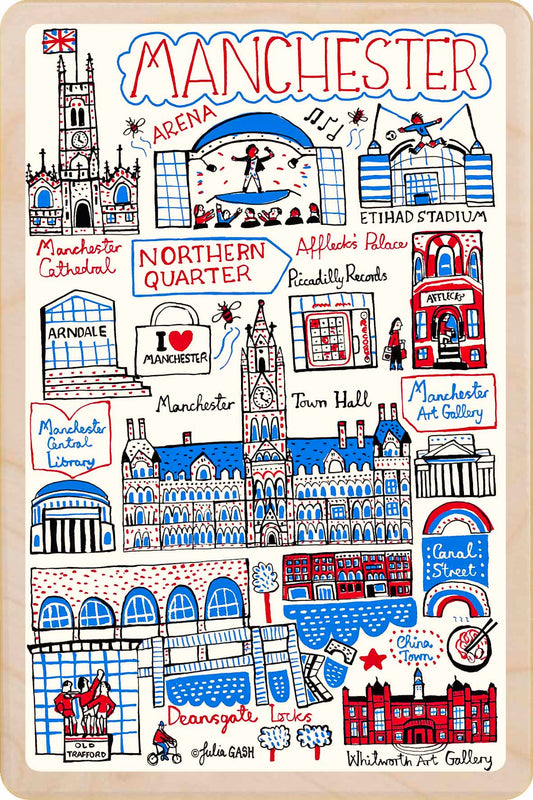 MANCHESTER
ARENA
ETIHAD STADIUM
Manchester
Cathedral
NORTHERN
QUARTER
Affleck's Palace
Piccadilly Records
AFFLECKS
ARNDALE
I ♥
MANCHESTER
Manchester Town Hall
Manchester
Art Gallery
Manchester
Central
Library
Canal
Street
China
Town
Deansgate Locks
OLD
TRAFFORD
©Julia GASH
Whitworth Art Gallery